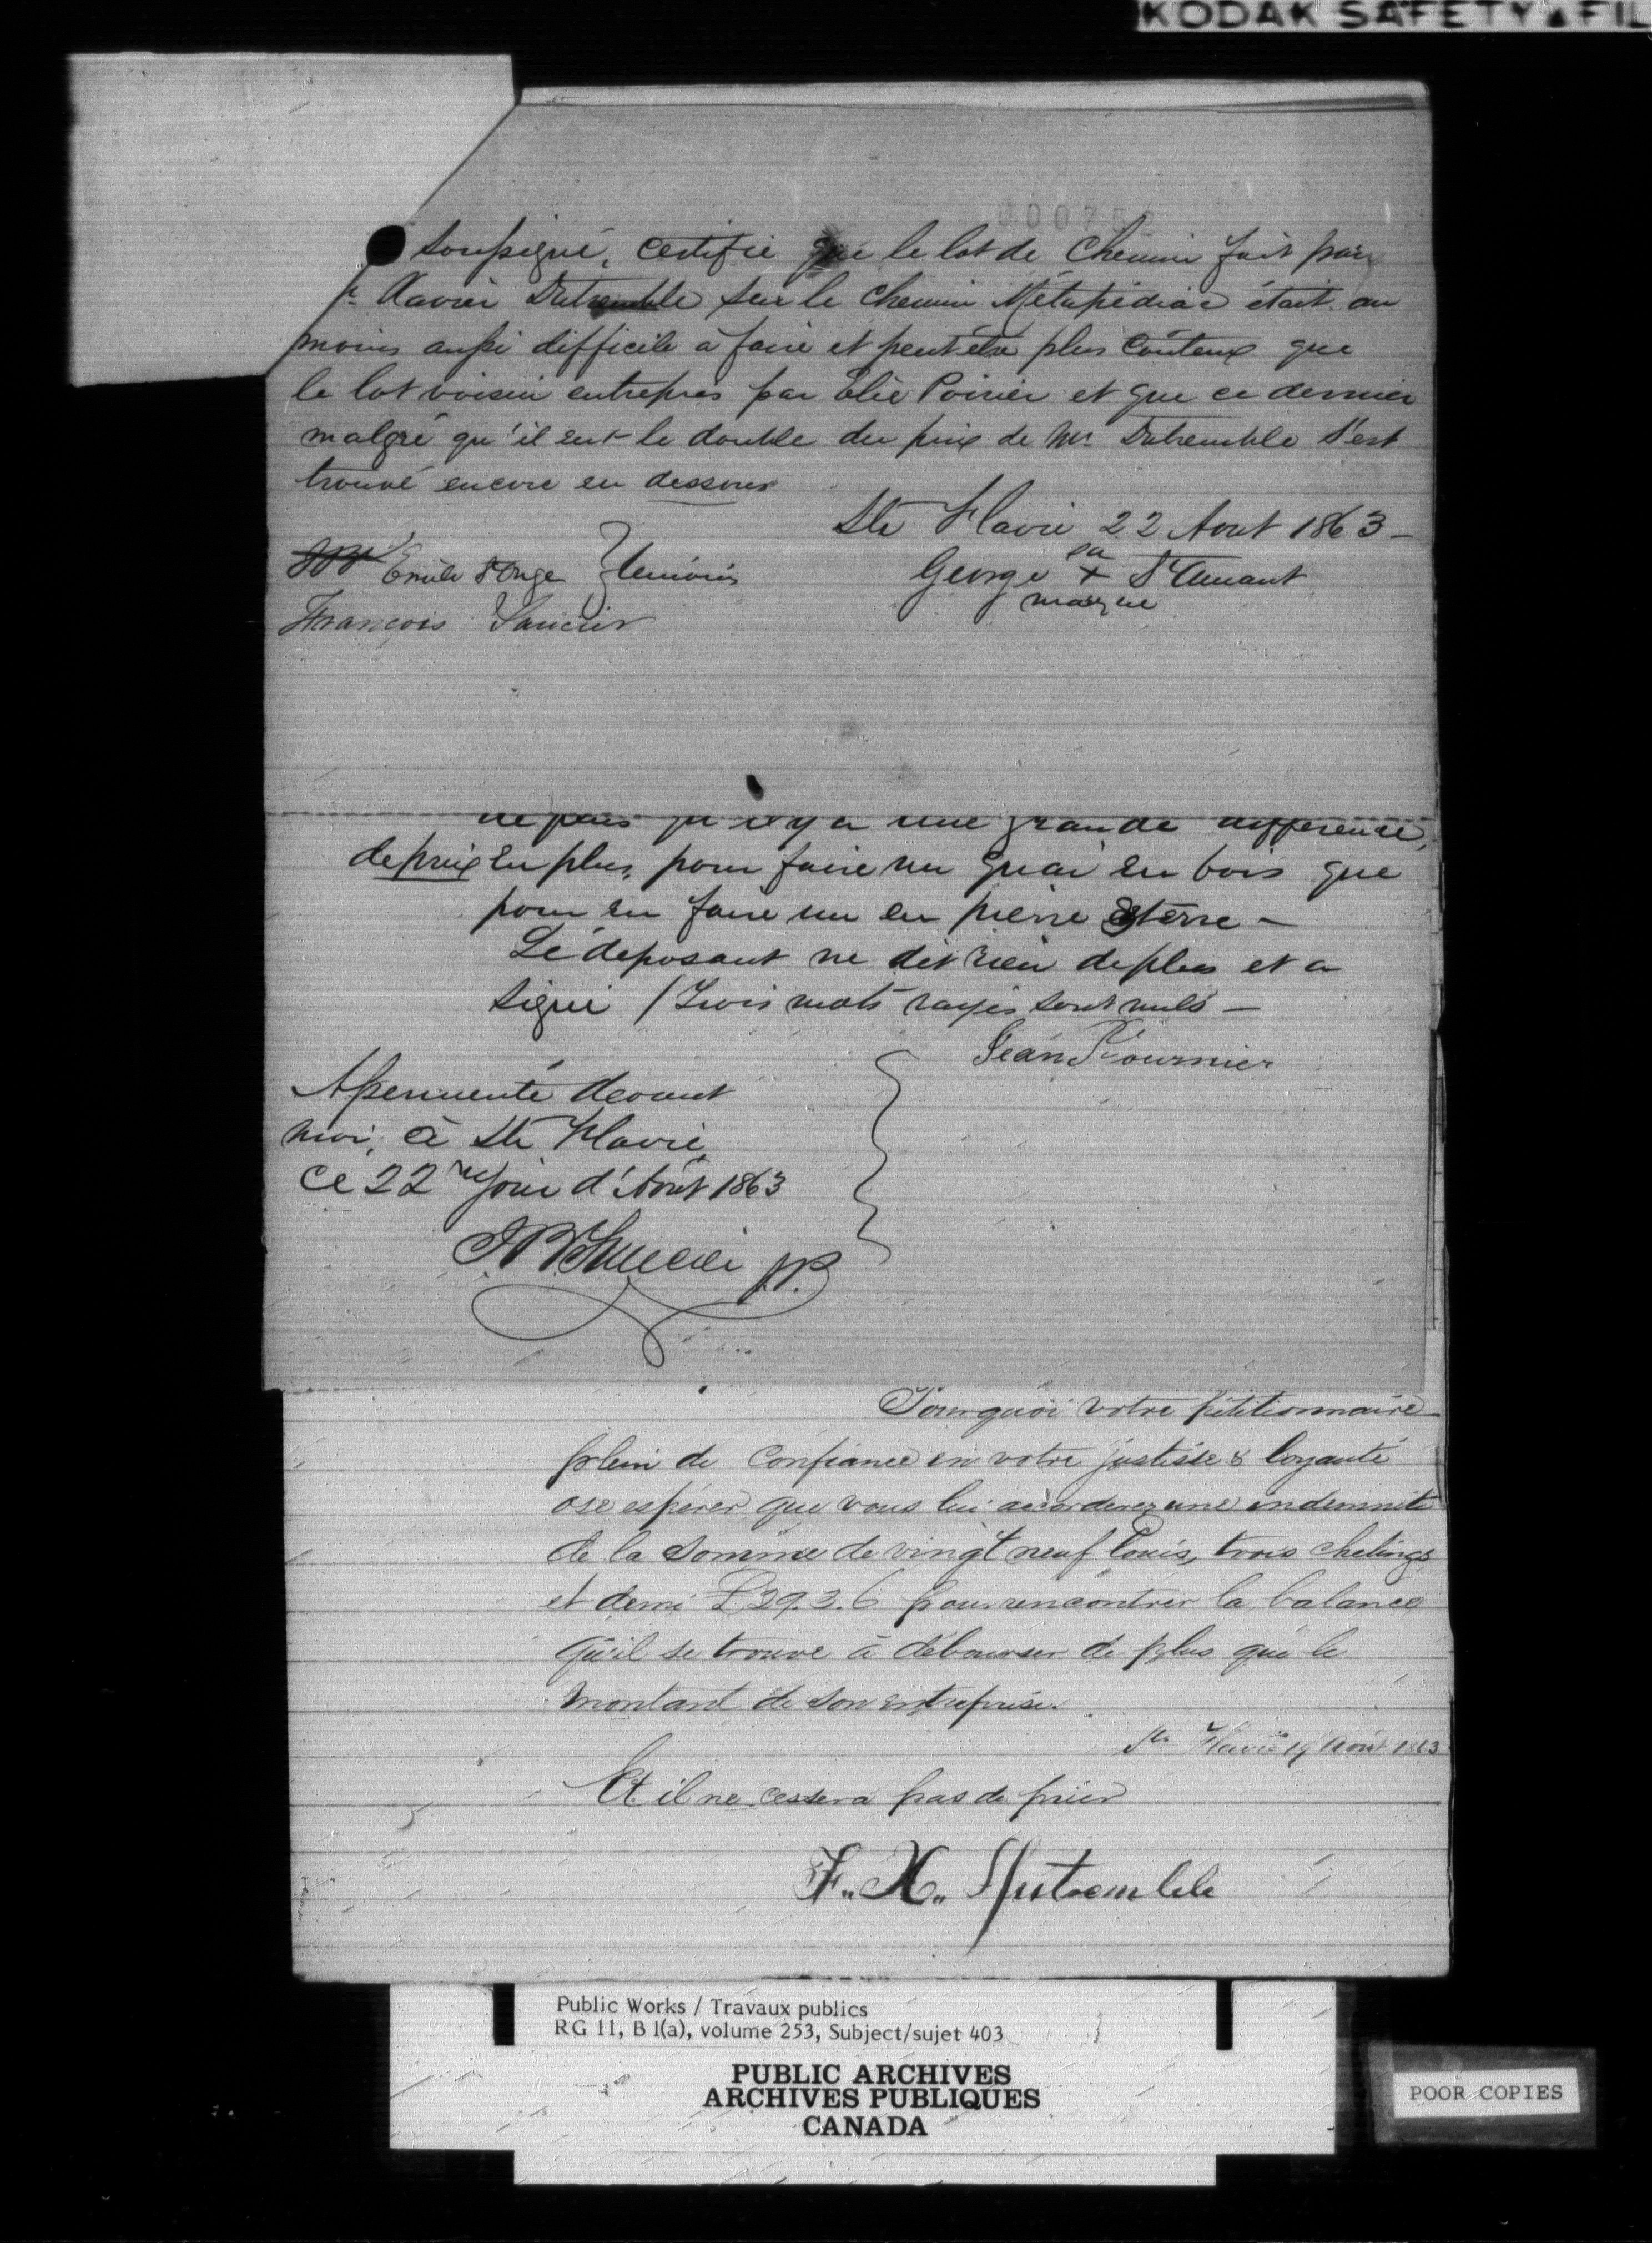 KODAK SAFETY FIL
00075
soussigné, certifie que le lot de chemin fait par
r Xavier Dutremble sur le chemin Métapédiac était au
moins aussi difficile à faire et peut être plus coûteux que
le lot voisin entrepris par Elie Poirier et que ce dernier
malgré qu'il eut le double du prix de Mr Dutremble s'est
trouvé encore en dessous
Ste Flavie 22 Aout 1863 -
Emile St Onge Témoins
George sa + marque St Amant
François Saucier
qu'il y a une grande différence,
de prix en plus, pour faire un quai en bois que
pour en faire un en pierre & terre -
Le deposant ne dit rien de plus et a
signé / Trois mots rayés sont nuls -
Jean Fournier
Assermenté devant
moi, à Ste Flavie,
ce 22me jour d'Aout 1863
J.P.
Pourquoi votre pétitionnaire
plein de confiance en votre justisse & loyauté
ose espérer que vous lui accorderez une indemnité
de la somme de vingt neuf Louis, trois chelings
et demi £29.3.6 pour rencontrer la balance
qu'il se trouve à débourser de plus que le
montant de son entreprise.
Ste Flavie 19 Aout 1863
Et il ne cessera pas de prier
F.. X.. Dutremble
Public Works / Travaux publics
RG 11, B 1(a), volume 253, Subject/sujet 403
PUBLIC ARCHIVES
ARCHIVES PUBLIQUES
CANADA
POOR COPIES